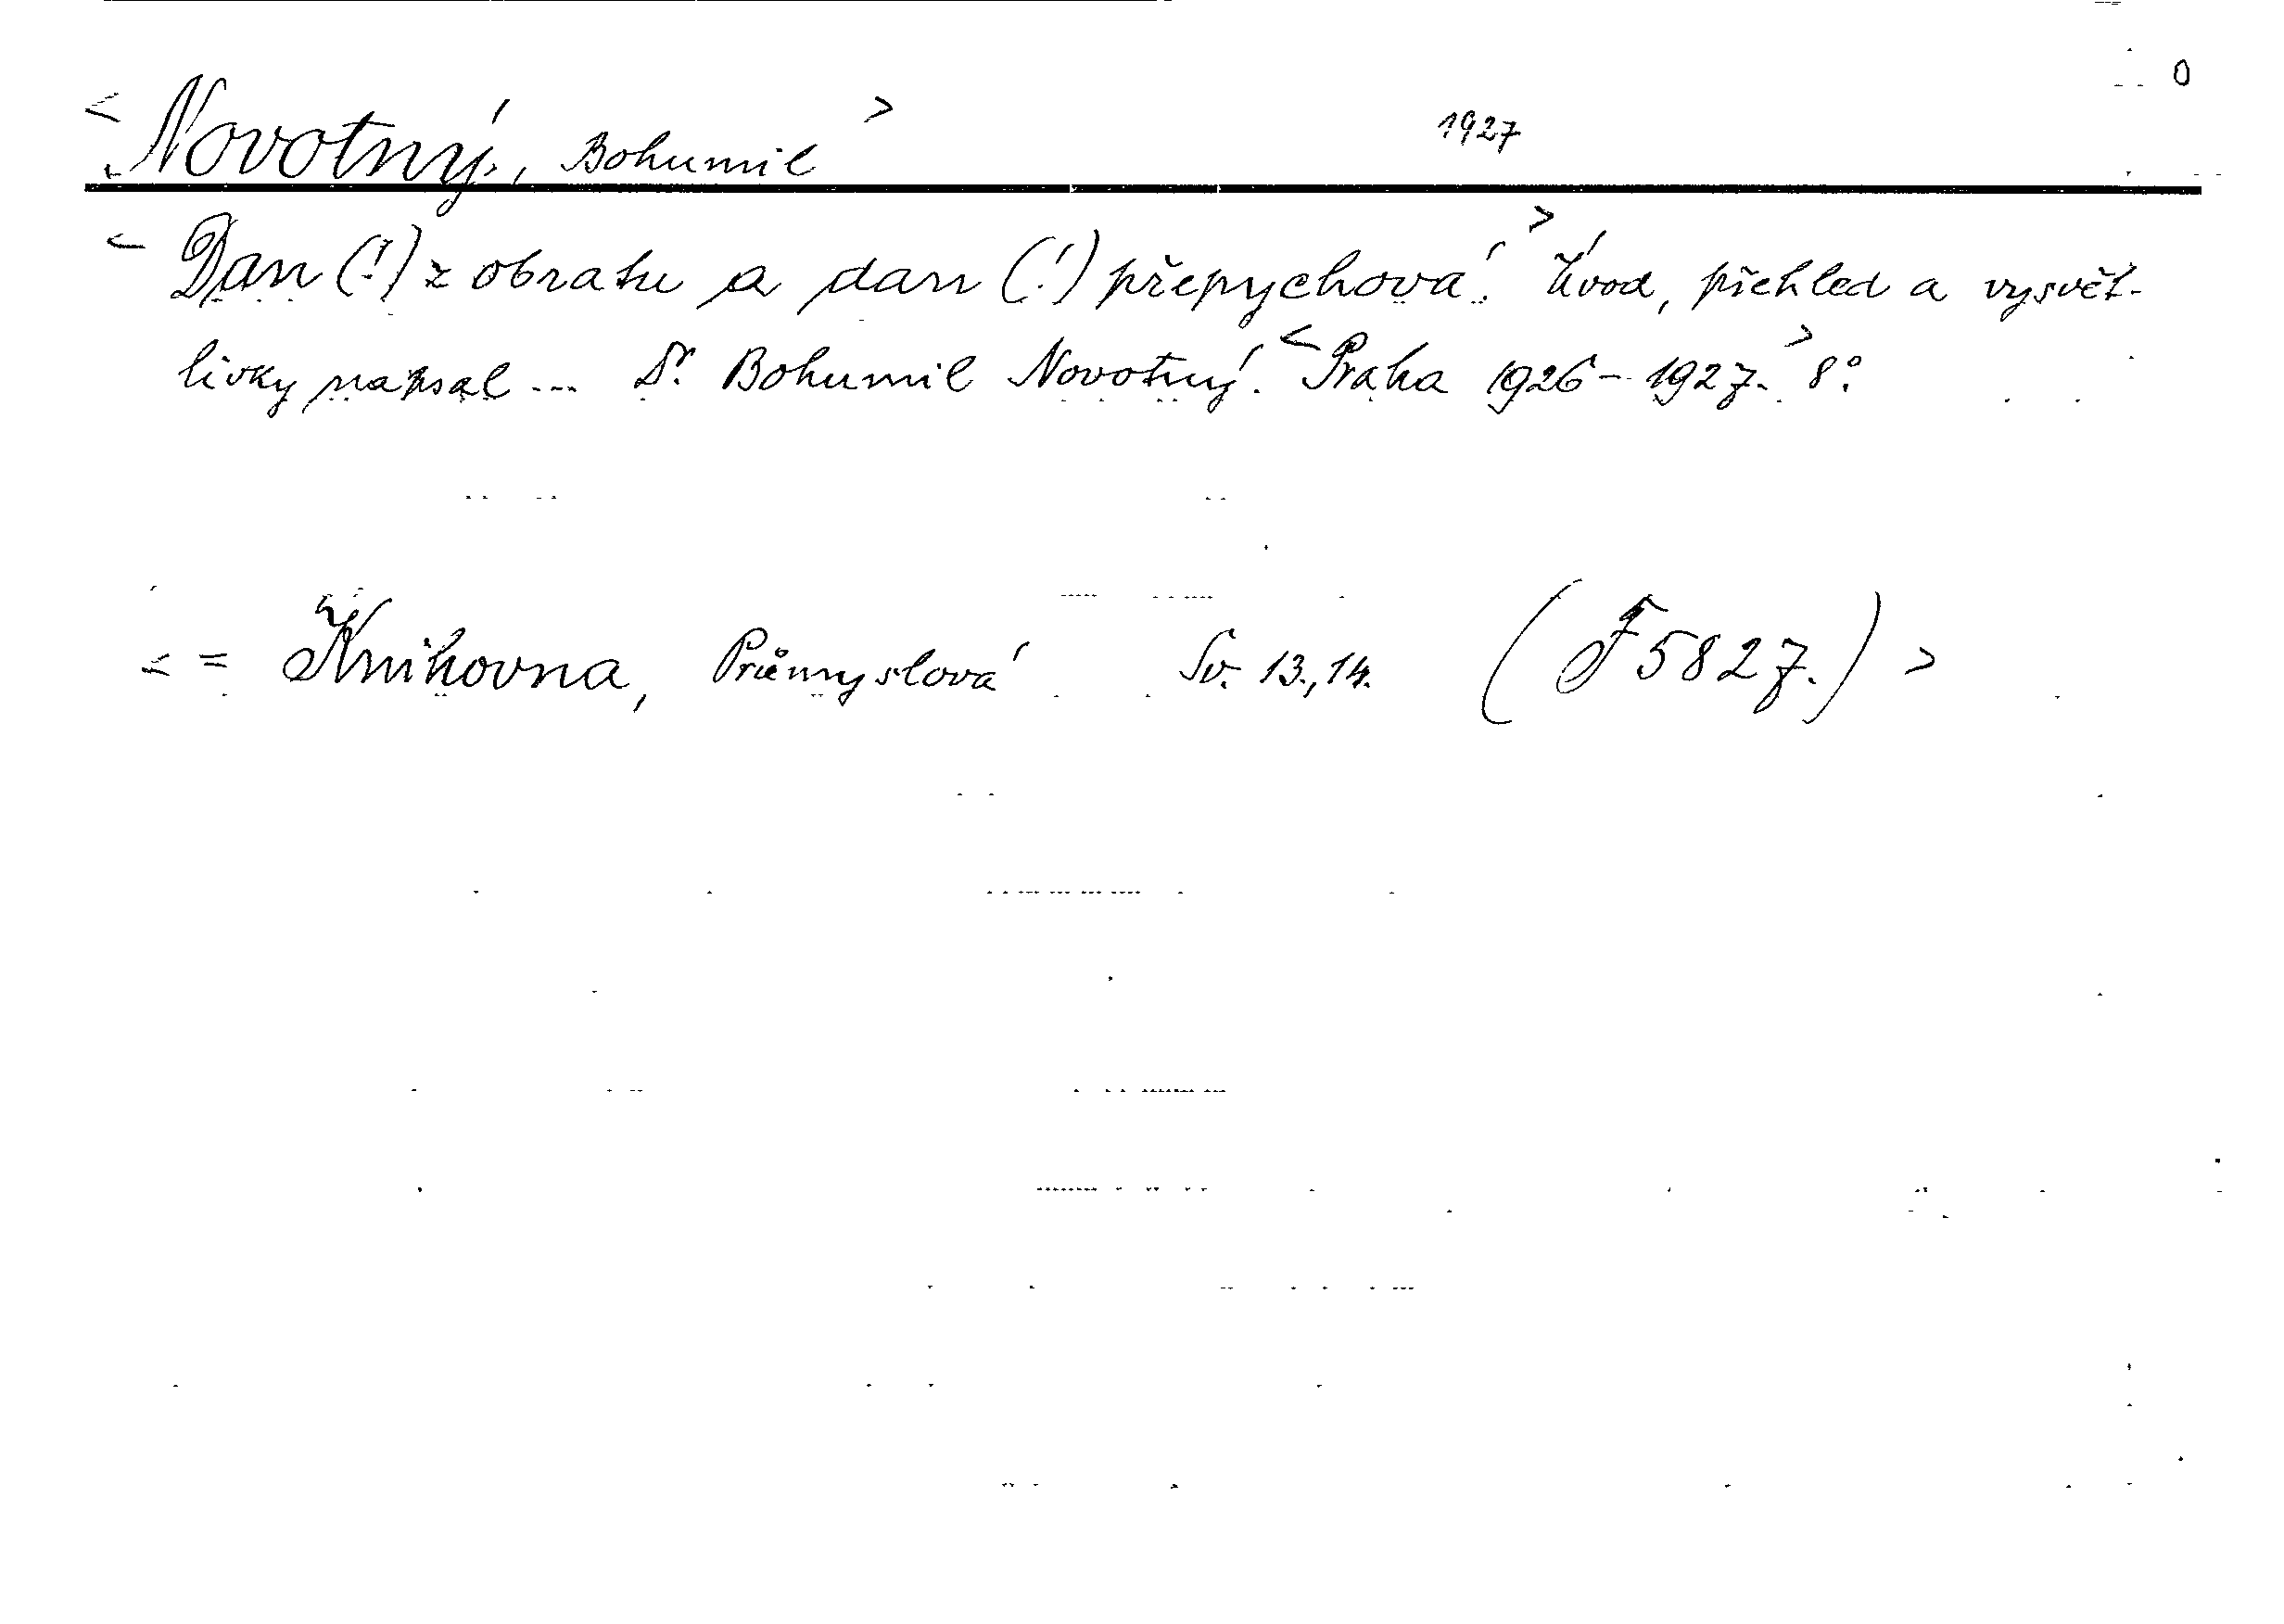 0
< Novotný, Bohumil > 1927
< Dan (!) z obratu a dan (!) přepychová. > Úvod, přehled a vysvět-
livky napsal ... Dr. Bohumil Novotný. < Praha 1926-1927. > 8°.
< = Knihovna, Průmyslová Sv. 13., 14. (F 5827.) >